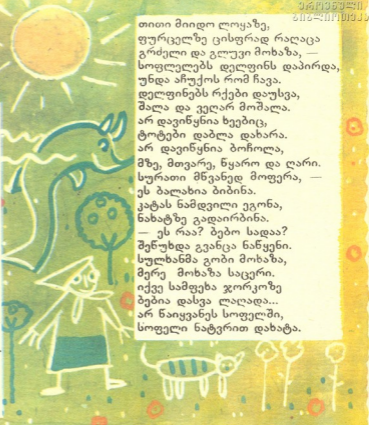 ეროვნული
ბიბლიოთეკა
თითი მიიდო ლოყაზე,
ფურცელზე ცისფრად რაღაცა
გრძელი და გლუვი მოხაზა, —
სოფლელებს დელფინს დაპირდა,
უნდა აჩუქოს რომ ჩავა.
დელფინებს რქები დაუსვა,
შალა და ვეღარ მოშალა.
არ დავიწყნია ხეებიც,
ტოტები დაბლა დახარა.
არ დავიწყნია ბოჩოლა,
მზე, მთვარე, წყარო და ღარი.
სურათი მწვანედ მოფერა, —
ეს ბალახია ბიბინა.
კატას ნამდვილი ეგონა,
ნახატზე გადაირბინა.
— ეს რაა? ბებო სადაა?
შეწუხდა გვანცა ნაწყენი.
სულხანმა გობი მოხაზა,
მერე მოხაზა საცერი.
იქვე სამფეხა ჯორკოზე
ბებია დასვა ლაღადა...
არ წაიყვანეს სოფელში,
სოფელი ნატვრით დახატა.